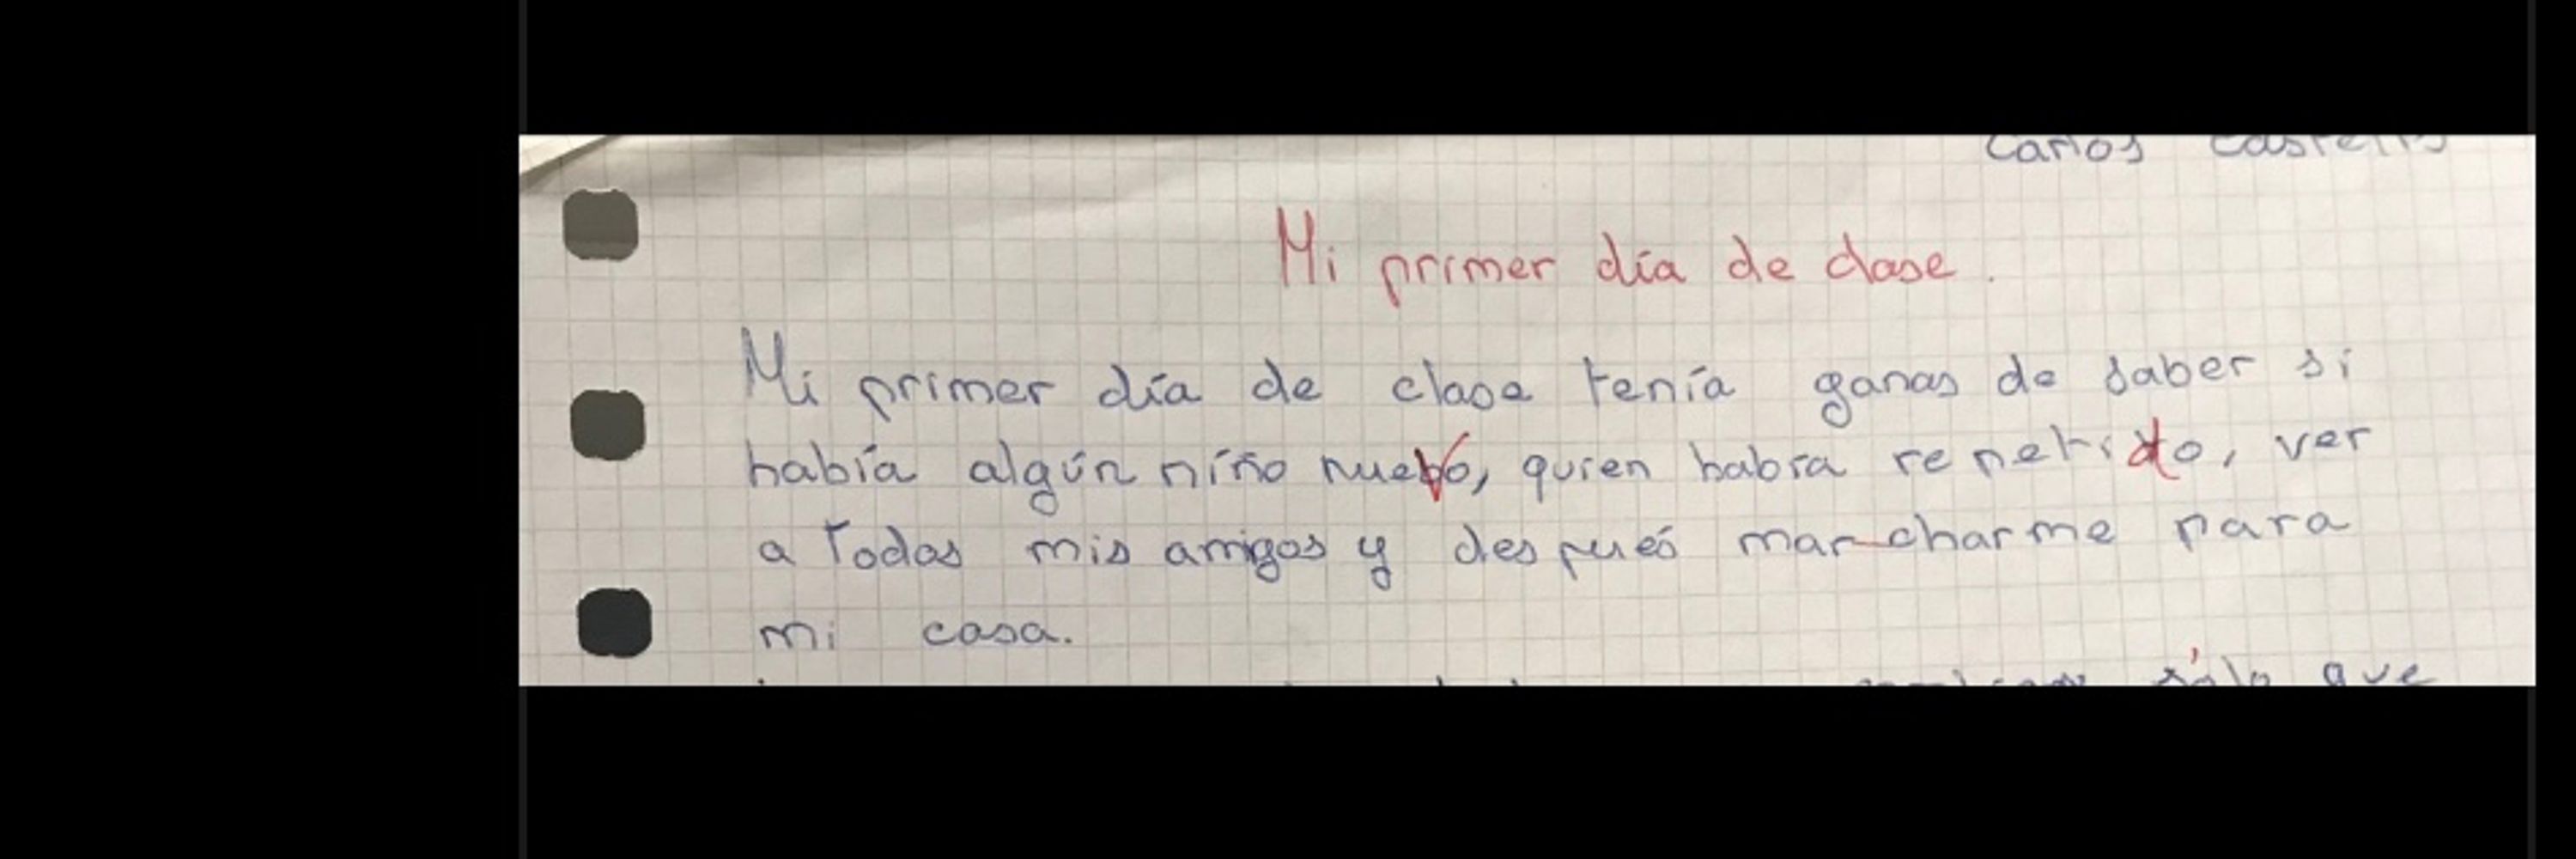 Carlos
Mi primer día de clase.
Mi primer día de clase tenía ganas de saber si
había algún niño nuevo, quien había repetido, ver
a todos mis amigos y después marcharme para
mi casa.
sólo que